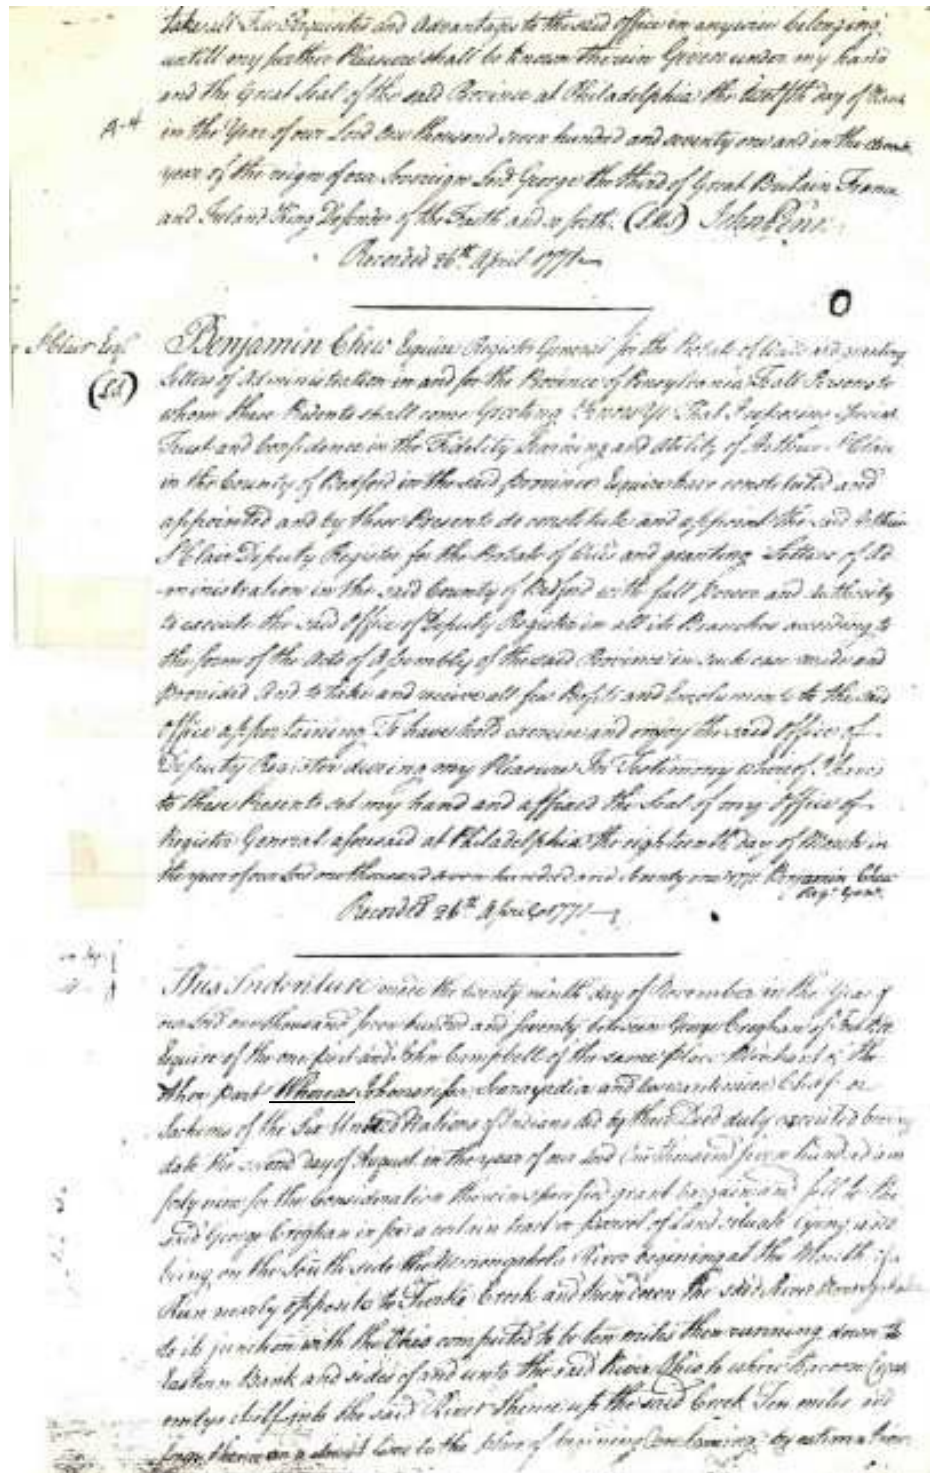 take all Fees Perquisites and Advantages to the said Office in anywise belonging
untill my further Pleasure shall be known therein Given under my hand
and the Great Seal of the said Province at Philadelphia the twelfth day of
A-4
in the Year of our Lord One thousand seven hundred and seventy one and in the
year of the reign of our Sovereign Lord George the third of Great Britain France
and Ireland King Defender of the Faith and so forth. John Penn
Recorded 26th April 1771
St Clair Esqr
Benjamin Chew Esquire Register General for the Probate of Wills and granting
Letters of Administration in and for the Province of Pensylvania To all Persons to
whom these Presents shall come Greeting Know Ye That I reposing special
Trust and Confidence in the Fidelity Learning and Ability of Arthur St Clair
in the County of Bedford in the said Province Esquire have constituted and
appointed and by these Presents do constitute and appoint the said Arthur
St Clair Deputy Register for the Probate of Wills and granting Letters of Ad
ministration in the said County of Bedford with full Power and Authority
to execute the said Office of Deputy Register in all its Branches according to
the form of the Acts of Assembly of the said Province in such case made and
provided And to take and receive all fees Profits and Emoluments to the said
Office appertaining To have hold exercise and enjoy the said Office of
Deputy Register during my Pleasure In Testimony whereof I have
to these Presents set my hand and affixed the Seal of my Office of
Register General aforesaid at Philadelphia the eighteenth day of March in
the year of our Lord one thousand seven hundred and seventy one 1771 Benjamin Chew
Regr Genl
Recorded 26th April 1771
This Indenture made the twenty ninth day of November in the Year of
our Lord one thousand seven hundred and seventy between George Croghan of
Esquire of the one part and John Campbell of the same place Merchant of the
other part Whereas Scarayadia and Chiefs or
Sachems of the Six United Nations of Indians did by their Deed duly executed bearing
date the second day of August in the year of our Lord One thousand seven hundred and
forty nine for the Consideration therein specified grant bargain and sell to the
said George Croghan in fee a certain tract or parcel of Land situate lying and
being on the South side the Monongahela River begining at the Mouth of a
Run nearly opposite to Turtle Creek and then down the said River Monongahela
to its junction with the Ohio computed to be ten miles then running down the
Eastern Bank and sides of and unto the said River Ohio to where Racoon Creek
emtys itself into the said River thence up the said Creek Ten miles and
from thence on a direct line to the place of begining Containing by estimation